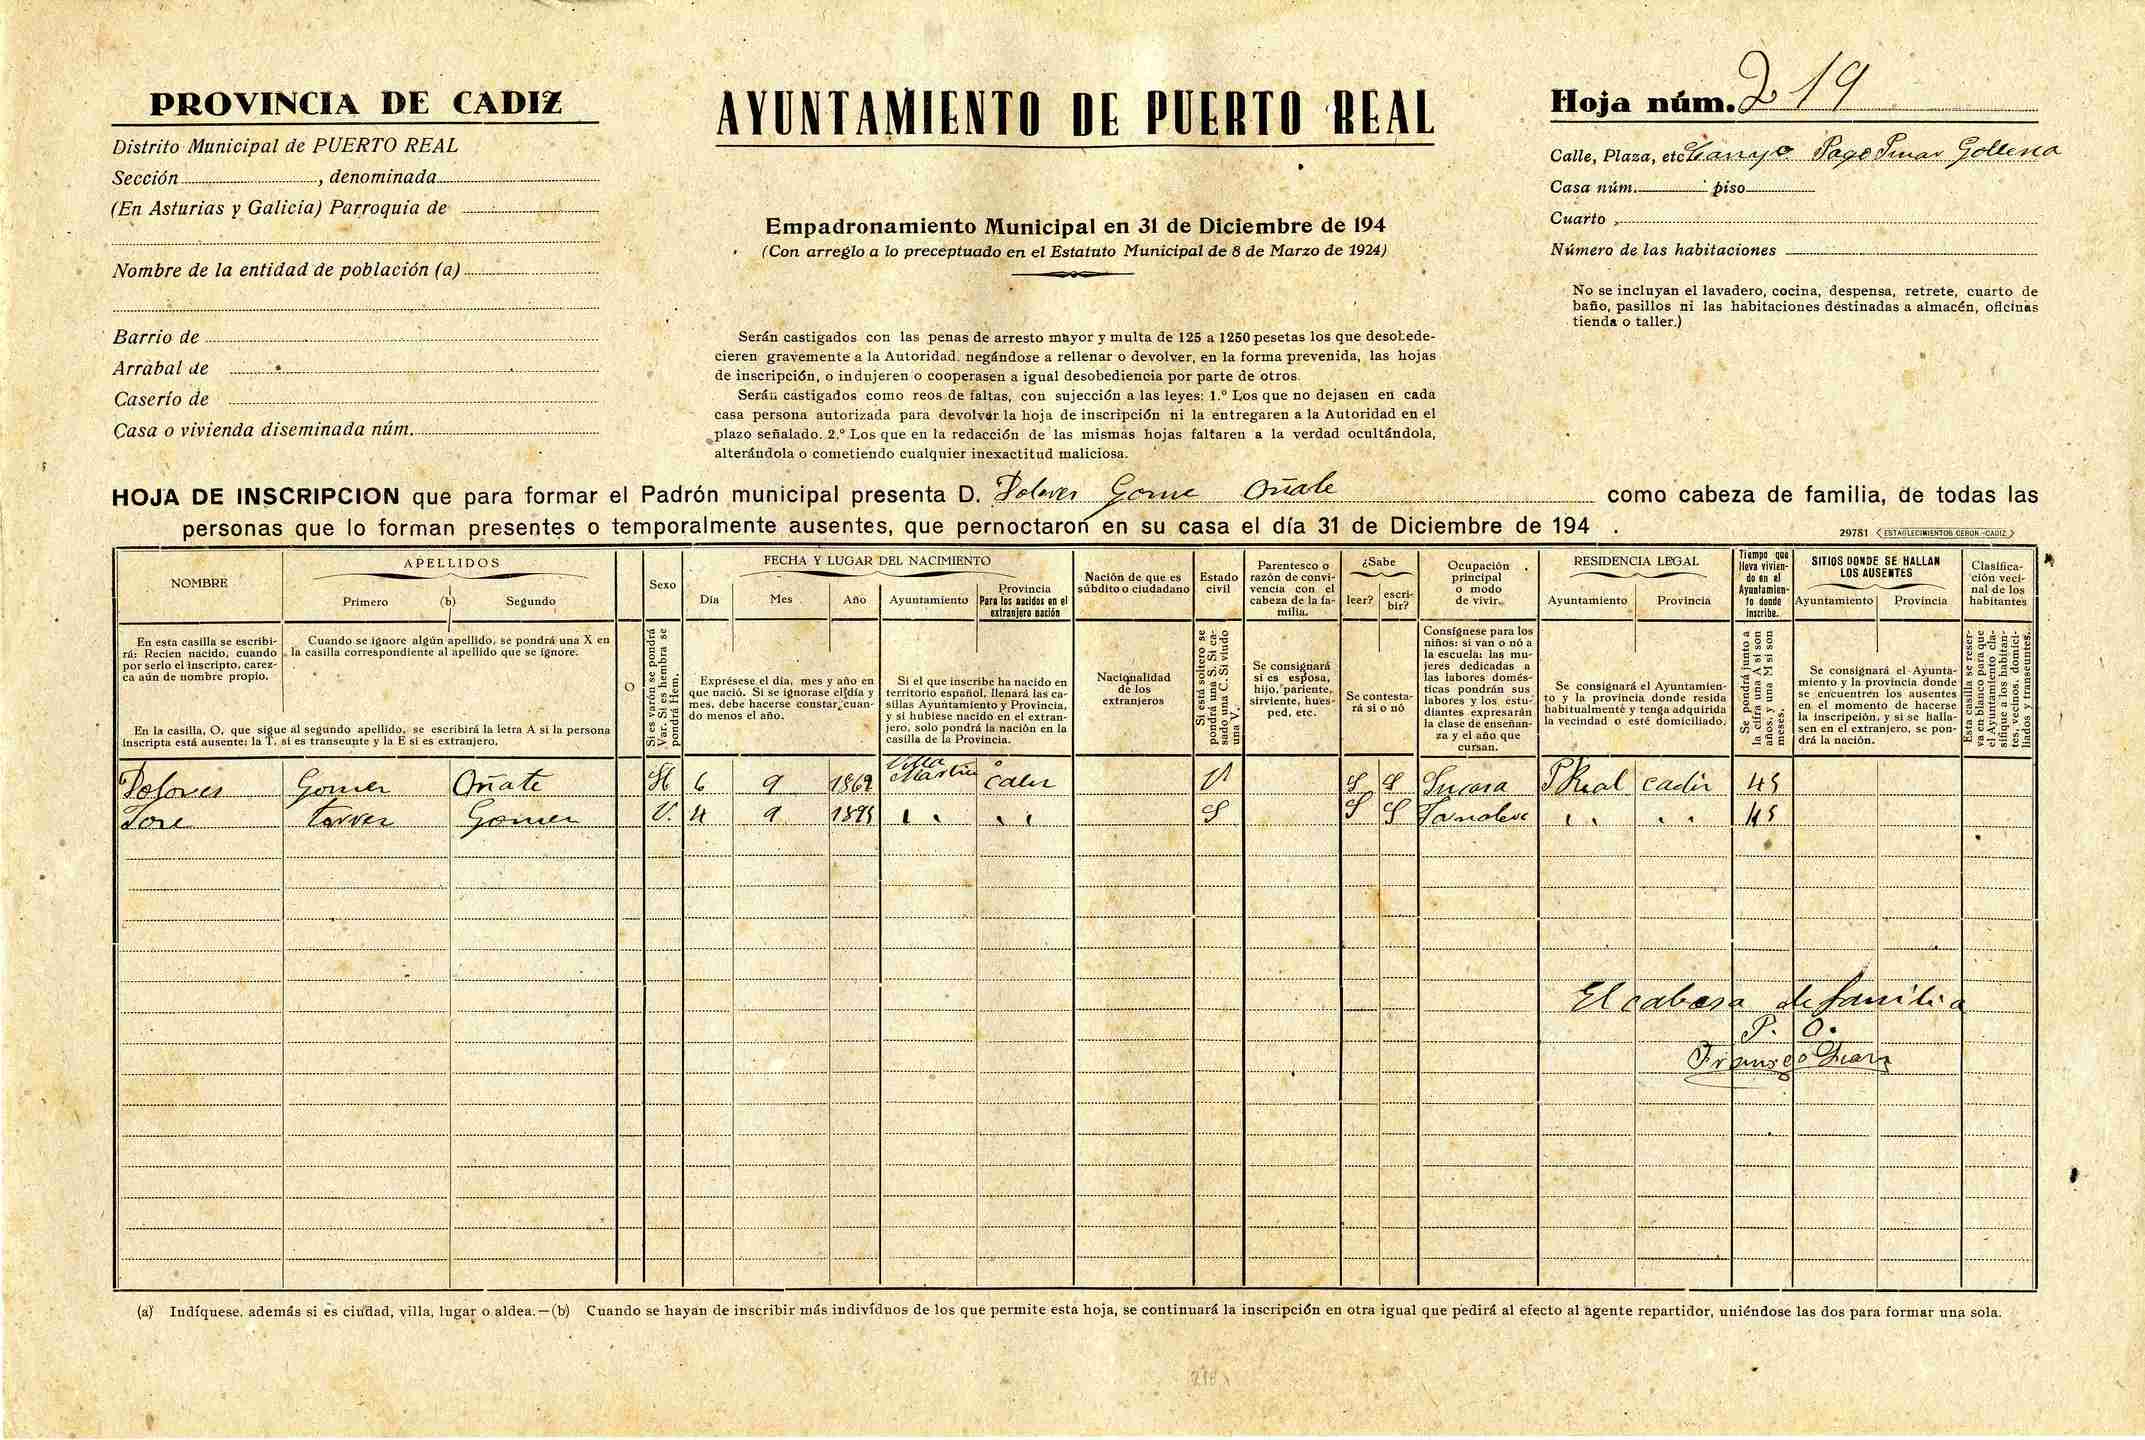 PROVINCIA DE CADIZ
Distrito Municipal de PUERTO REAL
Sección , denominada
(En Asturias y Galicia) Parroquia de
Nombre de la entidad de población (a)
Barrio de
Arrabal de
Caserío de
Casa o vivienda diseminada núm.
AYUNTAMIENTO DE PUERTO REAL
Empadronamiento Municipal en 31 de Diciembre de 194
(Con arreglo a lo preceptuado en el Estatuto Municipal de 8 de Marzo de 1924)
Serán castigados con las penas de arresto mayor y multa de 125 a 1250 pesetas los que desobede-
cieren gravemente a la Autoridad. negándose a rellenar o devolver, en la forma prevenida, las hojas
de inscripción, o indujeren o cooperasen a igual desobediencia por parte de otros.
Serán castigados como reos de faltas, con sujección a las leyes: 1.º Los que no dejasen en cada
casa persona autorizada para devolver la hoja de inscripción ni la entregaren a la Autoridad en el
plazo señalado. 2.º Los que en la redacción de las mismas hojas faltaren a la verdad ocultándola,
alterándola o cometiendo cualquier inexactitud maliciosa.
Hoja núm. 219
Calle, Plaza, etc Pago Pinar
Casa núm. piso
Cuarto
Número de las habitaciones
No se incluyan el lavadero, cocina, despensa, retrete, cuarto de
baño, pasillos ni las habitaciones destinadas a almacén, oficinas
tienda o taller.)
HOJA DE INSCRIPCION que para formar el Padrón municipal presenta D. Dolores Gome Oñate como cabeza de familia, de todas las
personas que lo forman presentes o temporalmente ausentes, que pernoctaron en su casa el día 31 de Diciembre de 194 .
29781 ESTABLECIMIENTOS CERON.-CADIZ
NOMBRE
APELLIDOS
Primero (b) Segundo
Sexo
FECHA Y LUGAR DEL NACIMIENTO
Día Mes Año Ayuntamiento
Provincia
Para los nacidos en el
extranjero nación
Nación de que es
súbdito o ciudadano
Estado
civil
Parentesco o
razón de convi-
vencia con el
cabeza de la fa-
milia.
¿Sabe
leer? escri-
bir?
Ocupación
principal
o modo
de vivir.
RESIDENCIA LEGAL
Ayuntamiento Provincia
Tiempo que
lleva vivien-
do en el
Ayuntamien-
to donde
inscribe.
SITIOS DONDE SE HALLAN
LOS AUSENTES
Ayuntamiento Provincia
Clasifica-
ción veci-
nal de los
habitantes
En esta casilla se escribi-
rá: Recien nacido, cuando
por serlo el inscripto, carez-
ca aún de nombre propio.
Cuando se ignore algún apellido, se pondrá una X en
la casilla correspondiente al apellido que se ignore.
En la casilla, O, que sigue al segundo apellido, se escribirá la letra A si la persona
inscripta está ausente; la T, si es transeunte y la E si es extranjero.
O
Si es varón se pondrá
Var. Si es hembra se
pondrá Hem.
Exprésese el día, mes y año en
que nació. Si se ignorase el día y
mes, debe hacerse constar cuan-
do menos el año.
Si el que inscribe ha nacido en
territorio español, llenará las ca-
sillas Ayuntamiento y Provincia,
y si hubiese nacido en el extran-
jero, solo pondrá la nación en la
casilla de la Provincia.
Nacionalidad
de los
extranjeros
Si está soltero se
pondrá una S. Si ca-
sado una C. Si viudo
una V.
Se consignará
si es esposa,
hijo, pariente,
sirviente, hues-
ped, etc.
Se contesta-
rá si o nó
Consígnese para los
niños: si van o nó a
la escuela: las mu-
jeres dedicadas a
las labores domés-
ticas pondrán sus
labores y los estu-
diantes expresarán
la clase de enseñan-
za y el año que
cursan.
Se consignará el Ayuntamien-
to y la provincia donde resida
habitualmente y tenga adquirida
la vecindad o esté domiciliado.
Se pondrá junto a
la cifra una A si son
años, y una M si son
meses.
Se consignará el Ayunta-
miento y la provincia donde
se encuentren los ausentes
en el momento de hacerse
la inscripción, y si se halla-
sen en el extranjero, se pon-
drá la nación.
Esta casilla se reser-
va en blanco para que
el Ayuntamiento cla-
sifique a los habitan-
tes, vecinos, domici-
liados y transeuntes.
Dolores Gomer Oñate H 6 9 1869 Villa Martin Cadir V S S Su casa P Real cadir 45
Jose Torres Gomer V. 4 9 S S S 45
El cabesa de familia
P. O.
(a) Indíquese. además si es ciudad, villa, lugar o aldea.—(b) Cuando se hayan de inscribir más indivíduos de los que permite esta hoja, se continuará la inscripción en otra igual que pedirá al efecto al agente repartidor, uniéndose las dos para formar una sola.